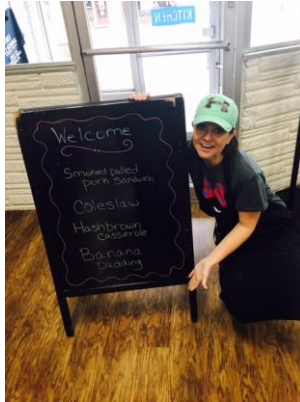 KITCHEN
Welcome
Smoked pulled
pork sandwich
Coleslaw
Hashbrown
casserole
Banana
Pudding